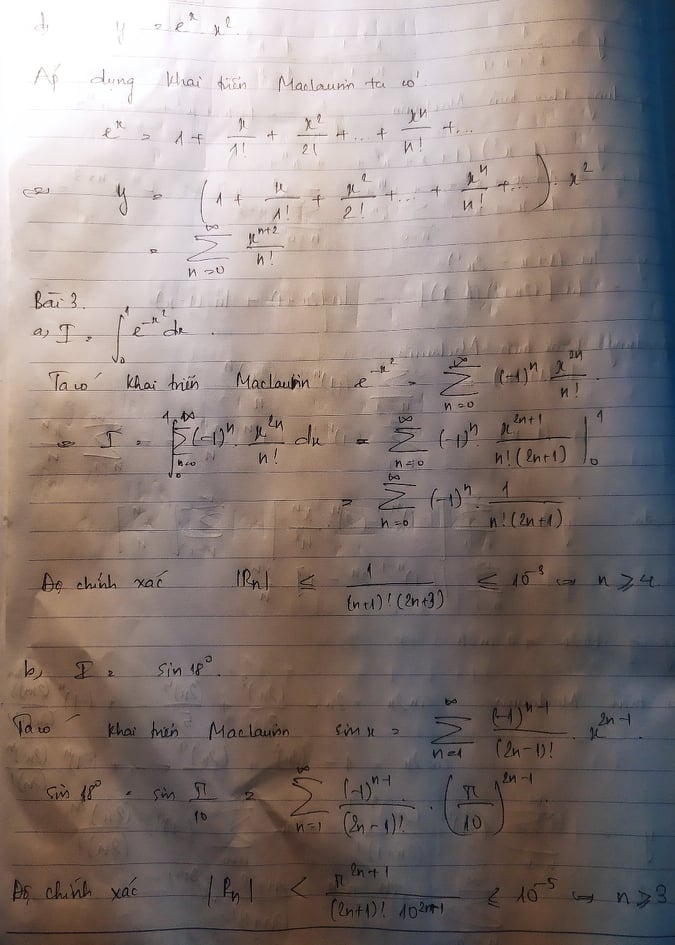 d, y = e^x x^2.
Áp dụng khai triển Maclaurin ta có
e^x = 1 + x/1! + x^2/2! + ... + x^n/n! + ...
⇔ y = (1 + x/1! + x^2/2! + ... + x^n/n! + ...) · x^2
= ∑_{n=0}^{∞} x^{n+2}/n!
Bài 3.
a, I = ∫_0^1 e^{-x^2} dx.
Ta có khai triển Maclaurin e^{-x^2} = ∑_{n=0}^{∞} (-1)^n x^{2n}/n!
⇔ I = ∫_0^1 ∑_{n=0}^{∞} (-1)^n · x^{2n}/n! dx = ∑_{n=0}^{∞} (-1)^n · x^{2n+1}/(n!(2n+1)) |_0^1
= ∑_{n=0}^{∞} (-1)^n · 1/(n!(2n+1))
Độ chính xác |R_n| ≤ 1/((n+1)!(2n+3)) ≤ 10^{-3} ⇔ n ≥ 4
b, I = sin 18°.
Ta có khai triển Maclaurin sin x = ∑_{n=1}^{∞} (-1)^{n-1}/(2n-1)! · x^{2n-1}.
sin 18° = sin π/10 = ∑_{n=1}^{∞} (-1)^{n-1}/(2n-1)! · (π/10)^{2n-1}
Độ chính xác |R_n| < π^{2n+1}/((2n+1)! 10^{2n+1}) ≤ 10^{-5} ⇔ n ≥ 3